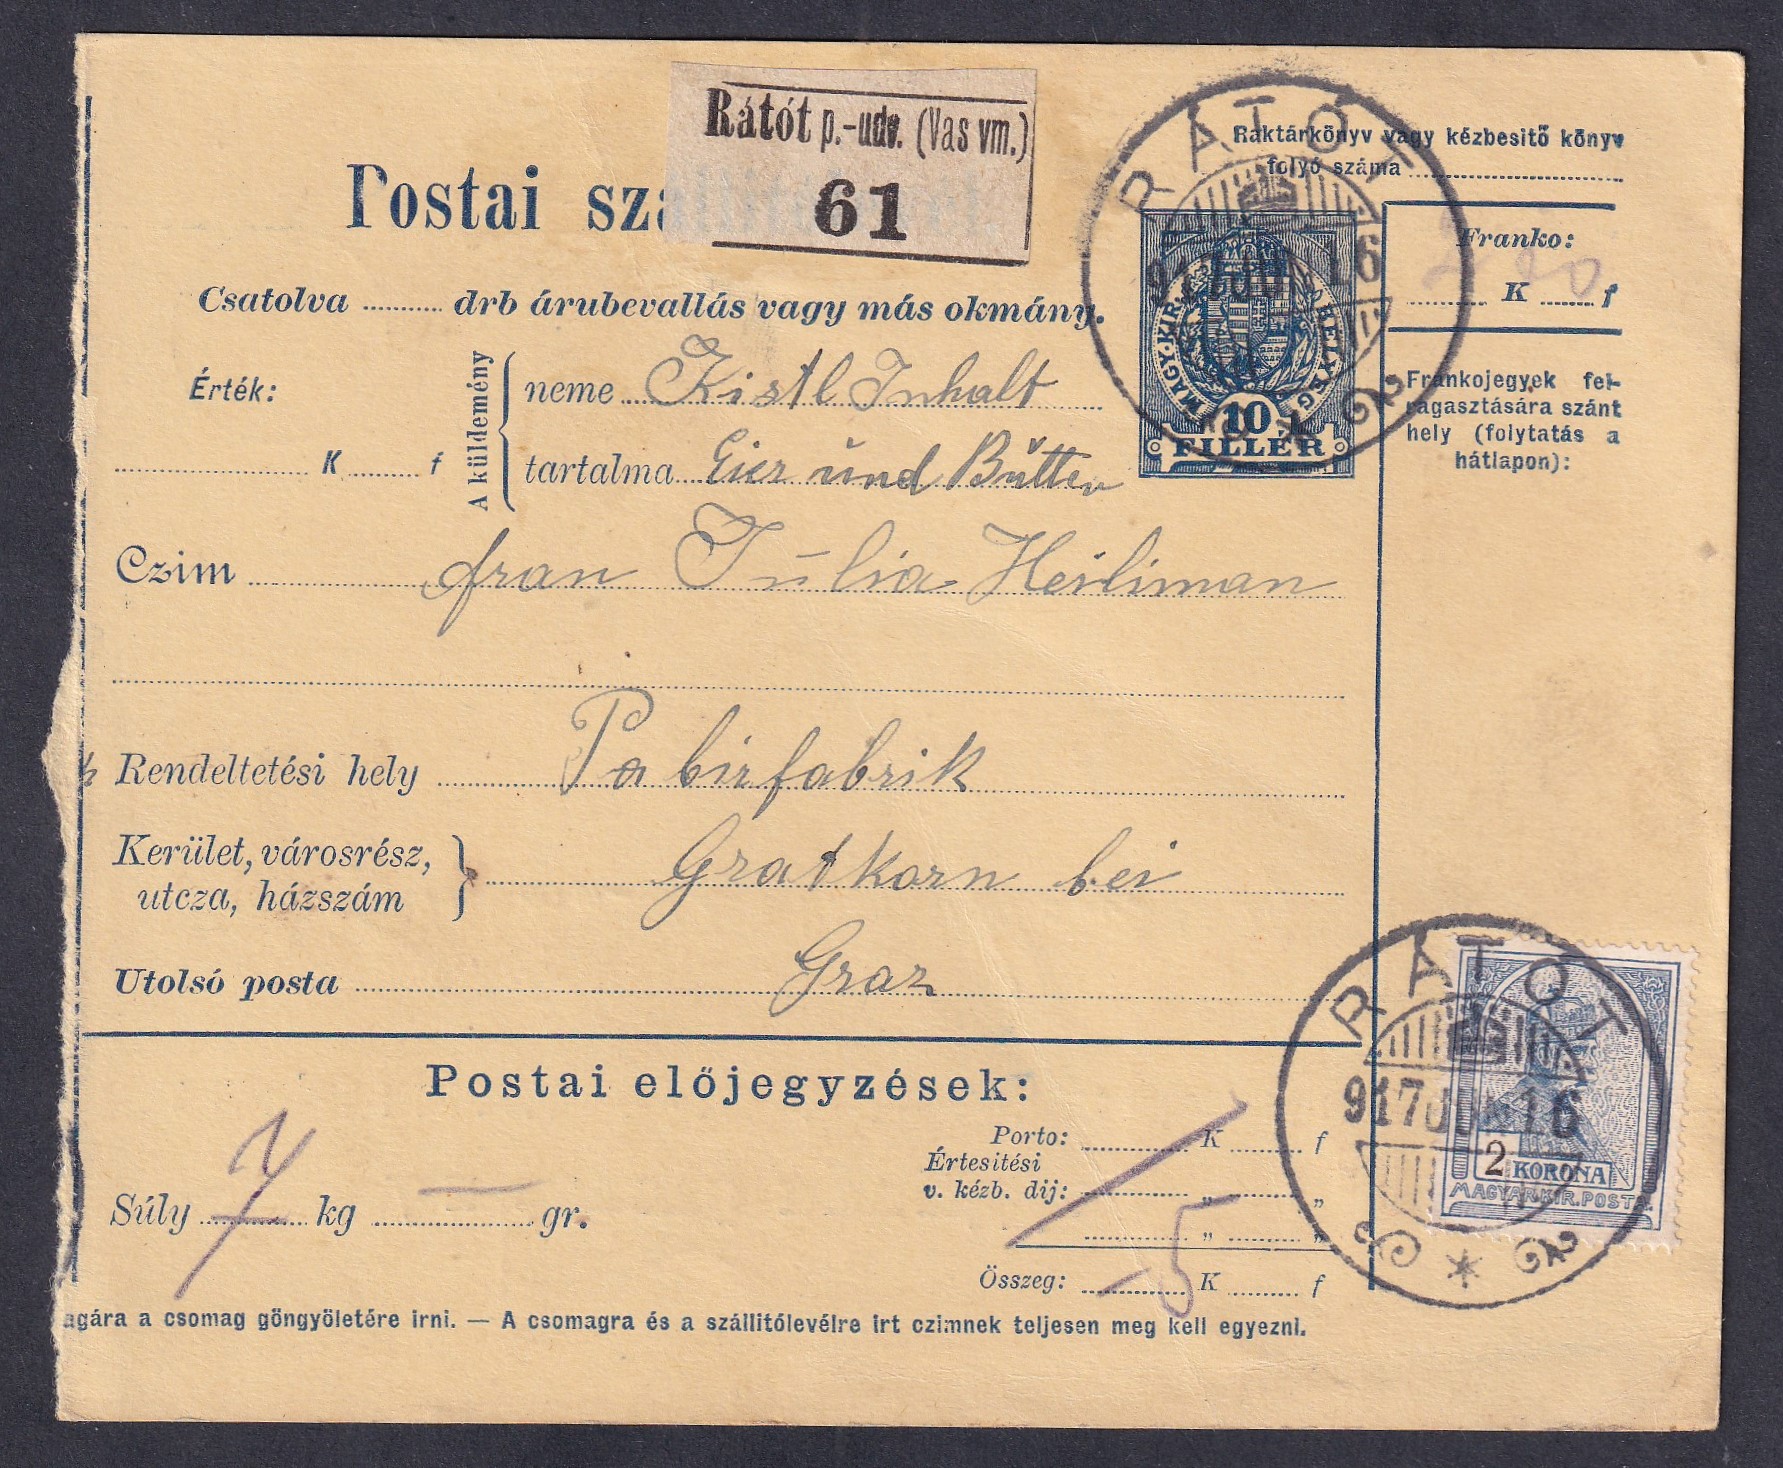 Rátót p.-udv. (Vas vm.)
61
Postai szállítólevél
RÁTÓT
Raktárkönyv vagy kézbesitő könyv
folyó száma
Franko:
K f
Csatolva drb árubevallás vagy más okmány.
MAGY. KIR. BÉLYEG
10
FILLÉR
Érték:
K f
A küldemény
neme Kistl Inhalt
tartalma Eier und Bútter
Frankojegyek fel-
ragasztására szánt
hely (folytatás a
hátlapon):
Czim fran Júlia Heiliman
Rendeltetési hely Pabirfabrik
Kerület, városrész,
utcza, házszám
Gratkorn bei
Utolsó posta Graz
RÁTÓT
917 16
2 KORONA
MAGYAR KIR. POSTA
Postai előjegyzések:
Súly 7 kg — gr.
Porto: K f
Értesitési
v. kézb. dij: „ „
„ „
Összeg: 5 K f
agára a csomag göngyöletére irni. — A csomagra és a szállitólevélre irt czimnek teljesen meg kell egyezni.